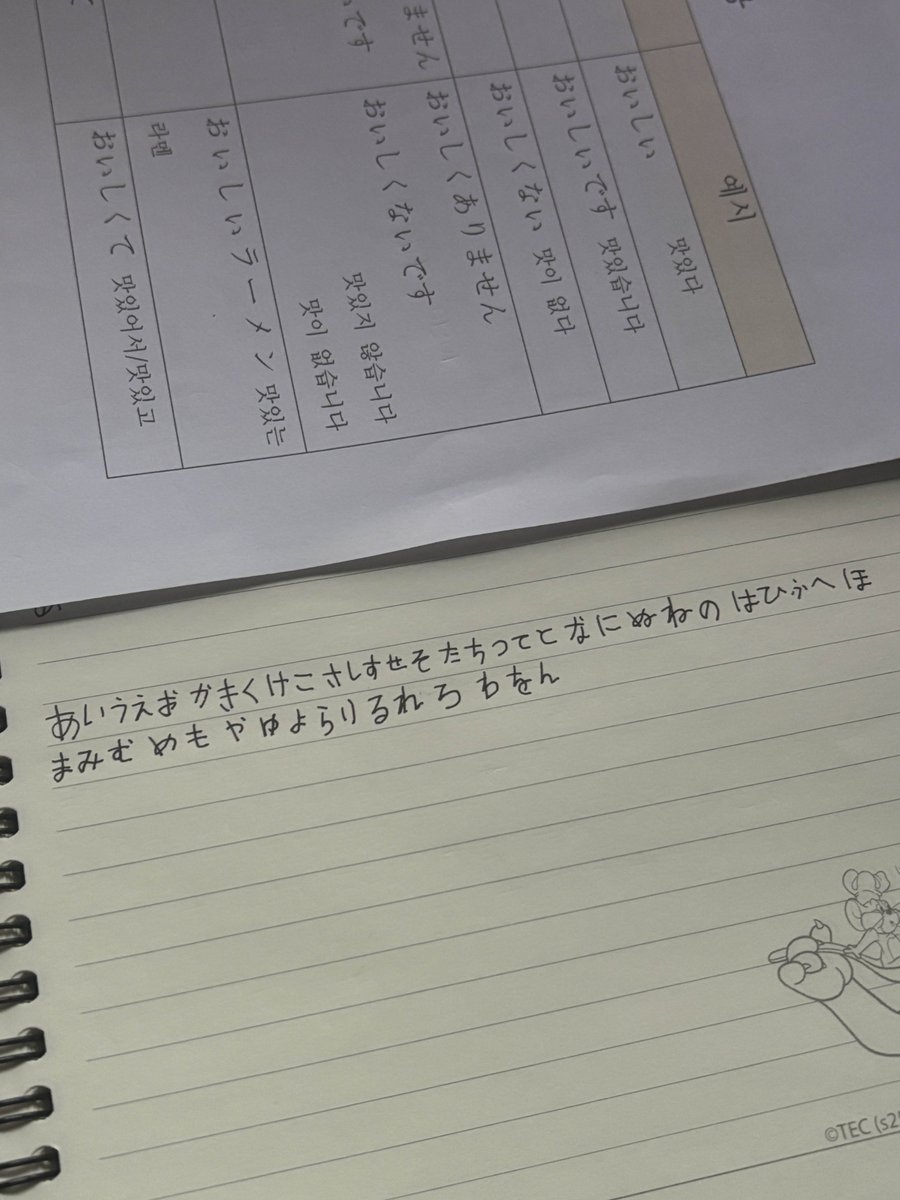 예시
おいしい 맛있다
おいしいです 맛있습니다
おいしくない 맛이 없다
ません
おいしくありません
です
おいしくないです
맛있지 않습니다
맛이 없습니다
おいしいラーメン 맛있는
라멘
おいしくて 맛있어서/맛있고
あいうえお かきくけこさしすせそたちつてと なにぬねの はひふへほ
まみむめも やゆよらりるれろ わをん
©TEC (s2